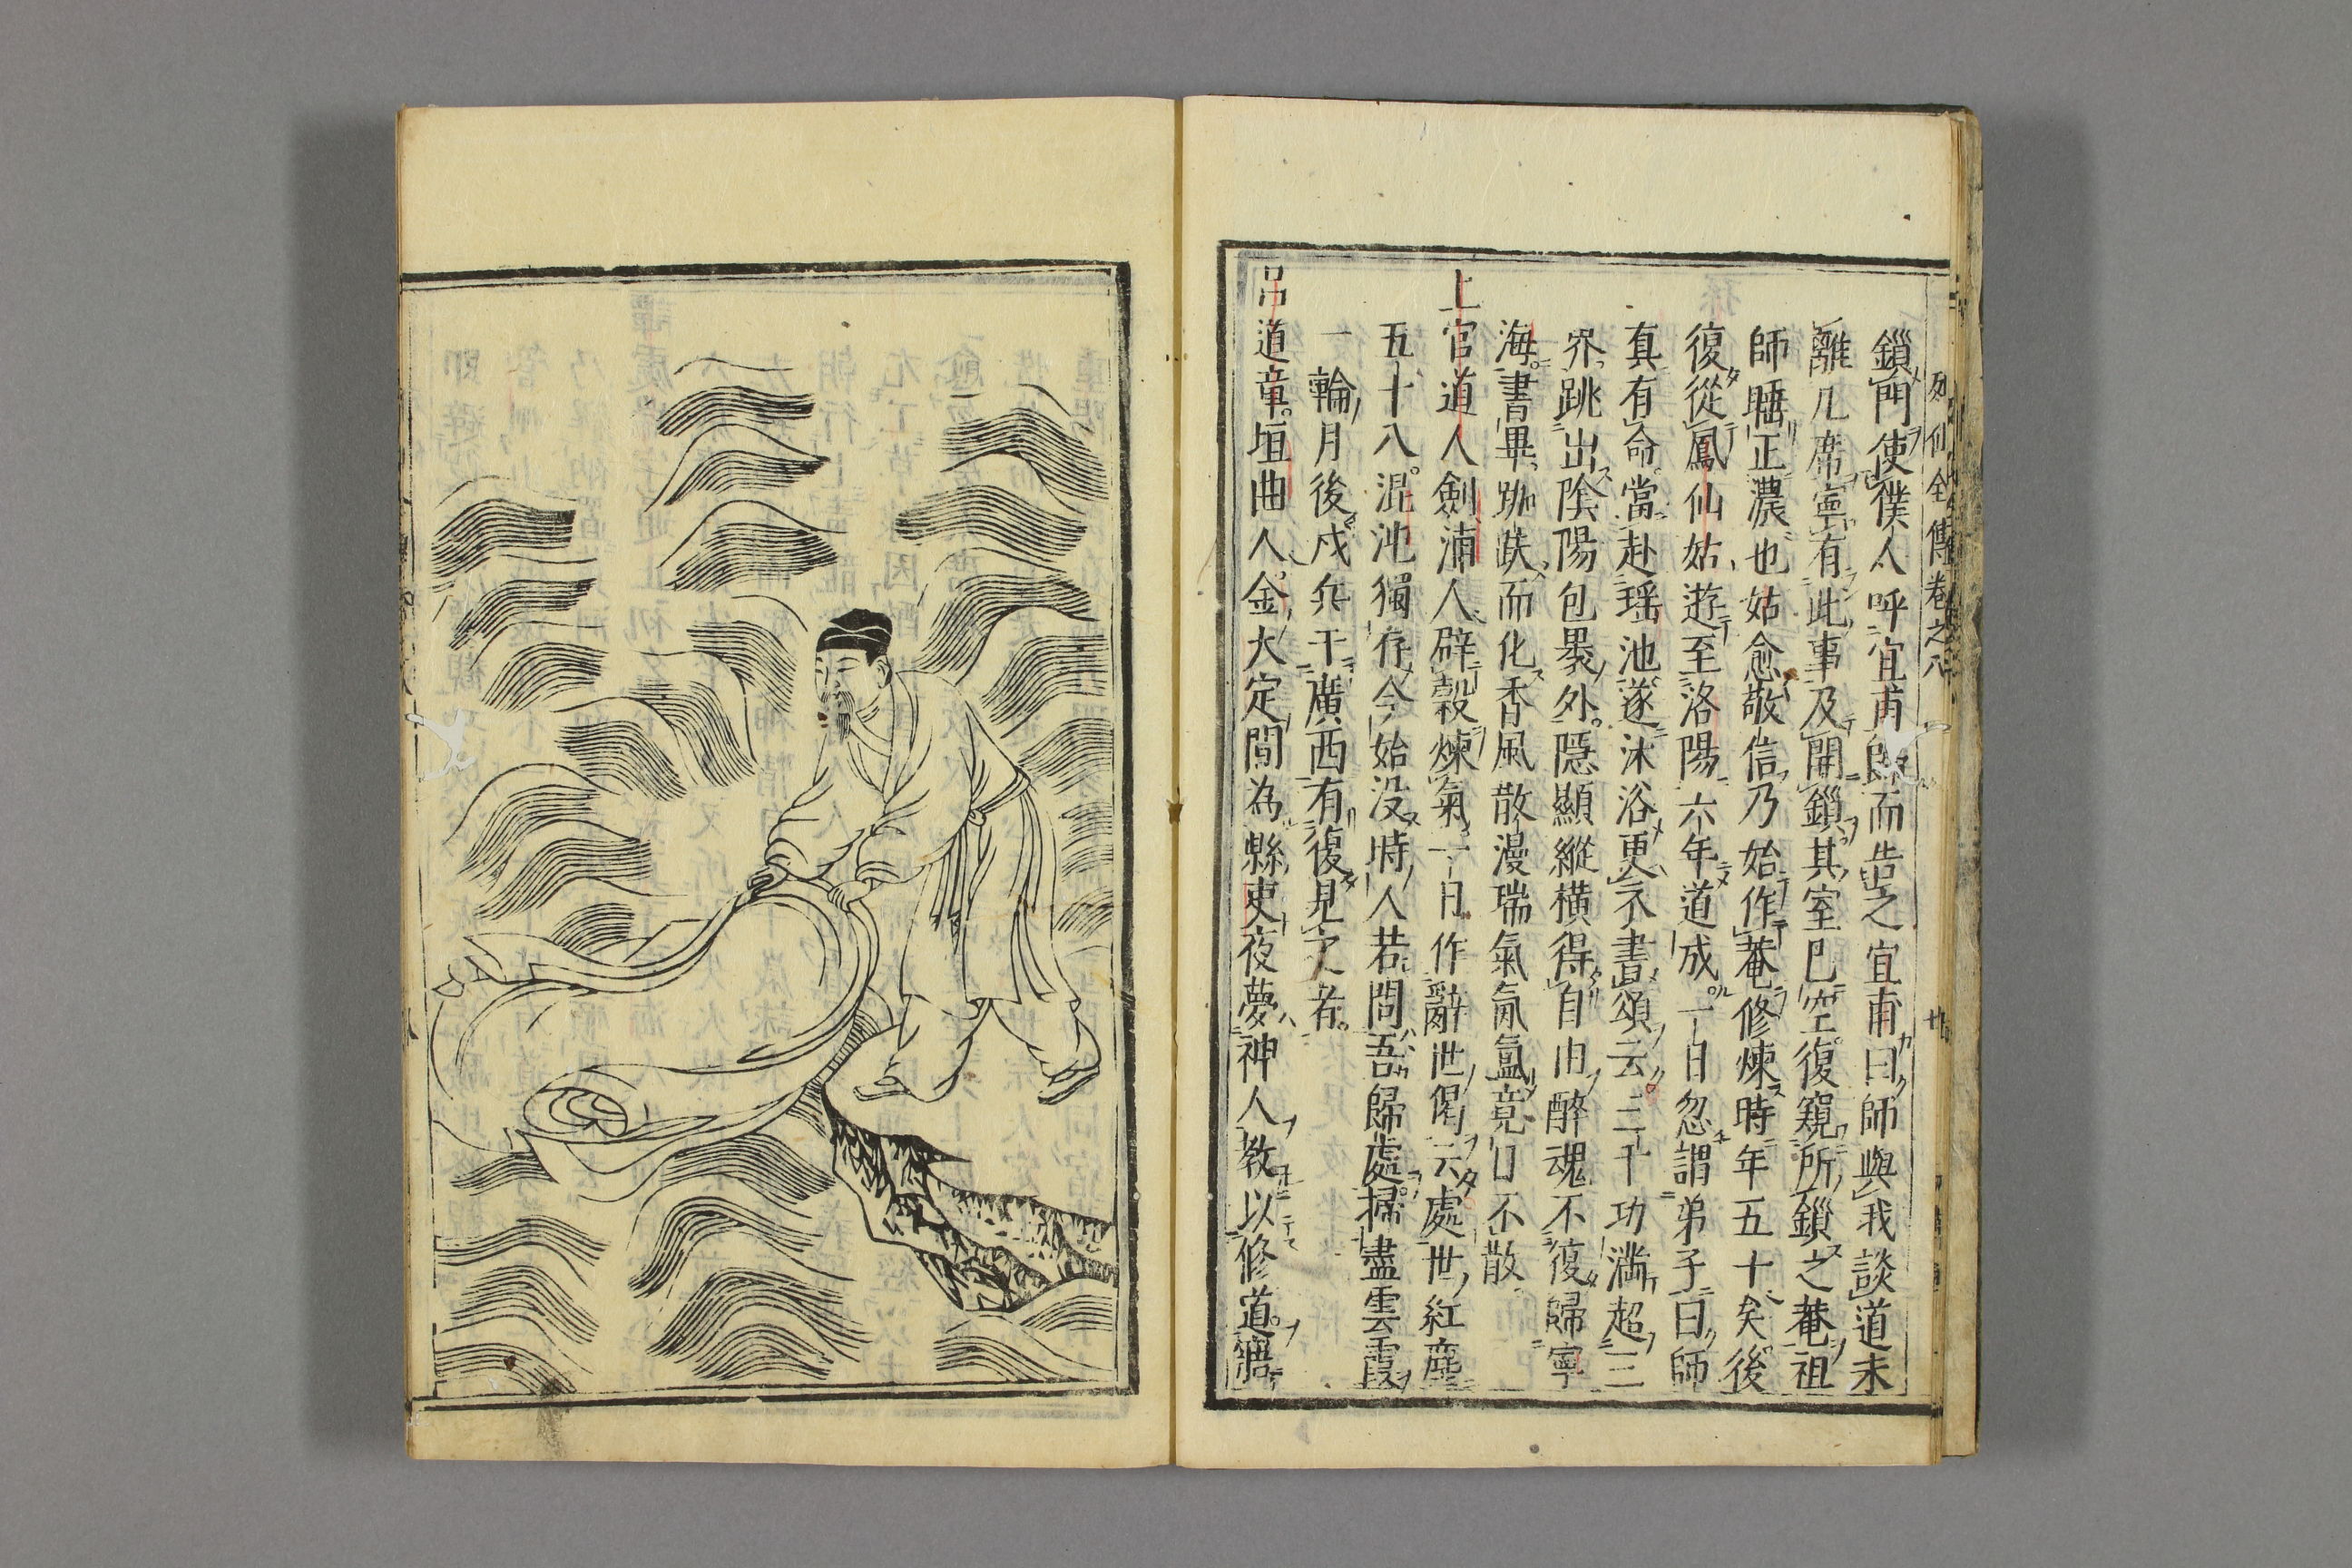 列仙全傳卷之八
鎖門使僕人呼宜甫郎而告之宜甫曰師與我談道未
離几席寧有此事及開鎖其室已空復窺所鎖之菴祖
師睡正濃也姑愈敬信乃始作菴修煉時年五十矣後
復從鳳仙姑遊至洛陽六年道成一日忽謂弟子曰師
真有命當赴瑶池遂沐浴更衣書頌云三千功滿超三
界跳出陰陽包裹外隱顯縱橫得自由醉魂不復歸寧
海書畢趺而化香風散漫瑞氣氤氳竟日不散
上官道人劍浦人辟穀煉氣一日作辭世偈云處世紅塵
五十八混沌獨存今始没時人若問吾歸處掃盡雲霞
一輪月後戍兵于廣西有復見之者
呂道章垣曲人金大定間為縣吏夜夢神人教以修道寤